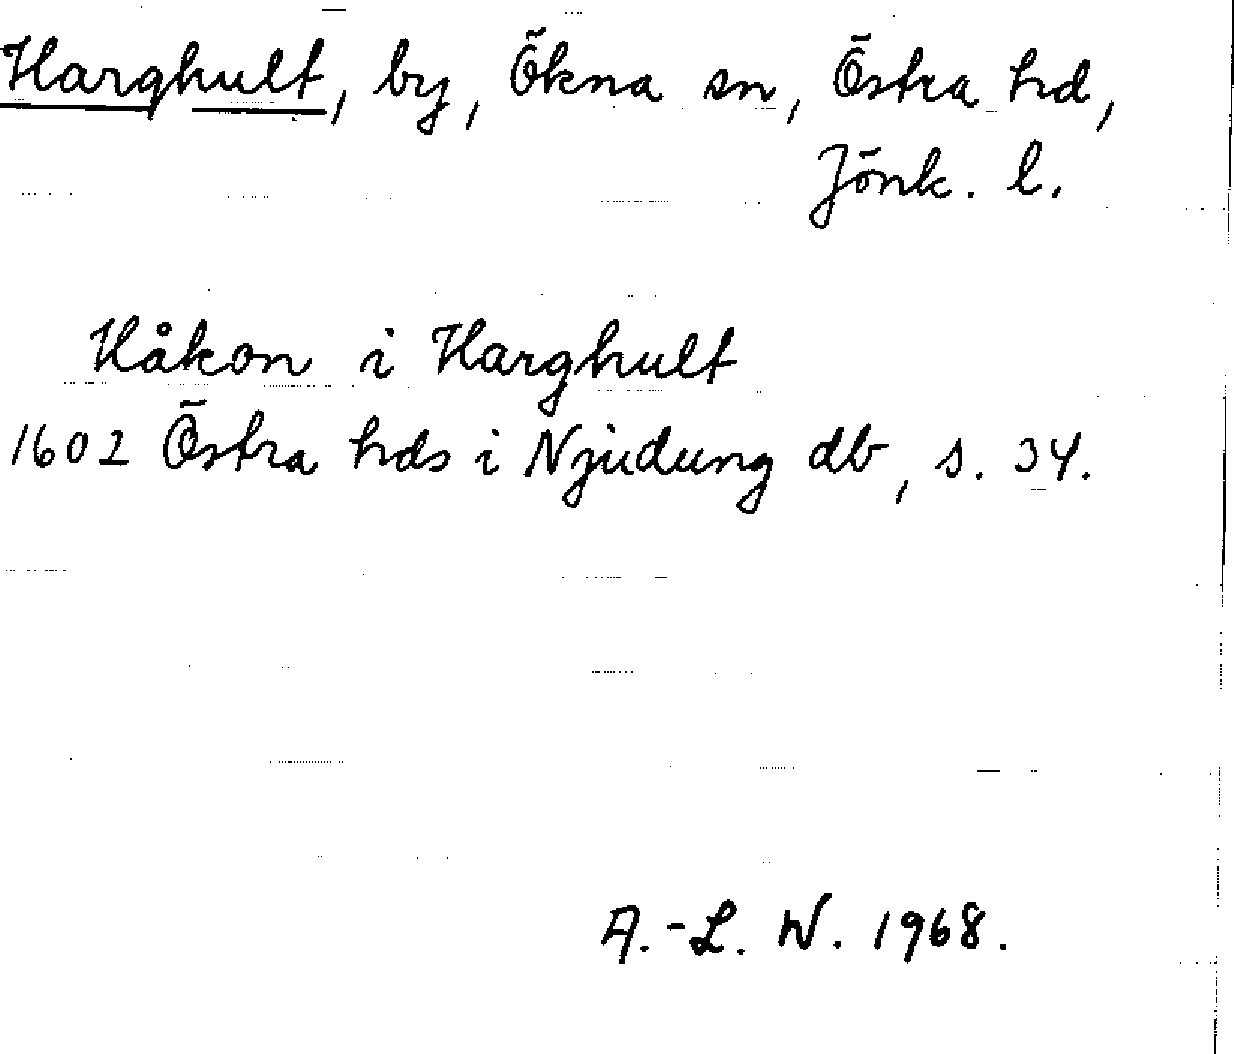 Harghult, by, Ökna sn, Östra hd,
Jönk. l.
Håkon i Harghult
1602 Östra hds i Njudung db, s. 34.
A.-L. W. 1968.